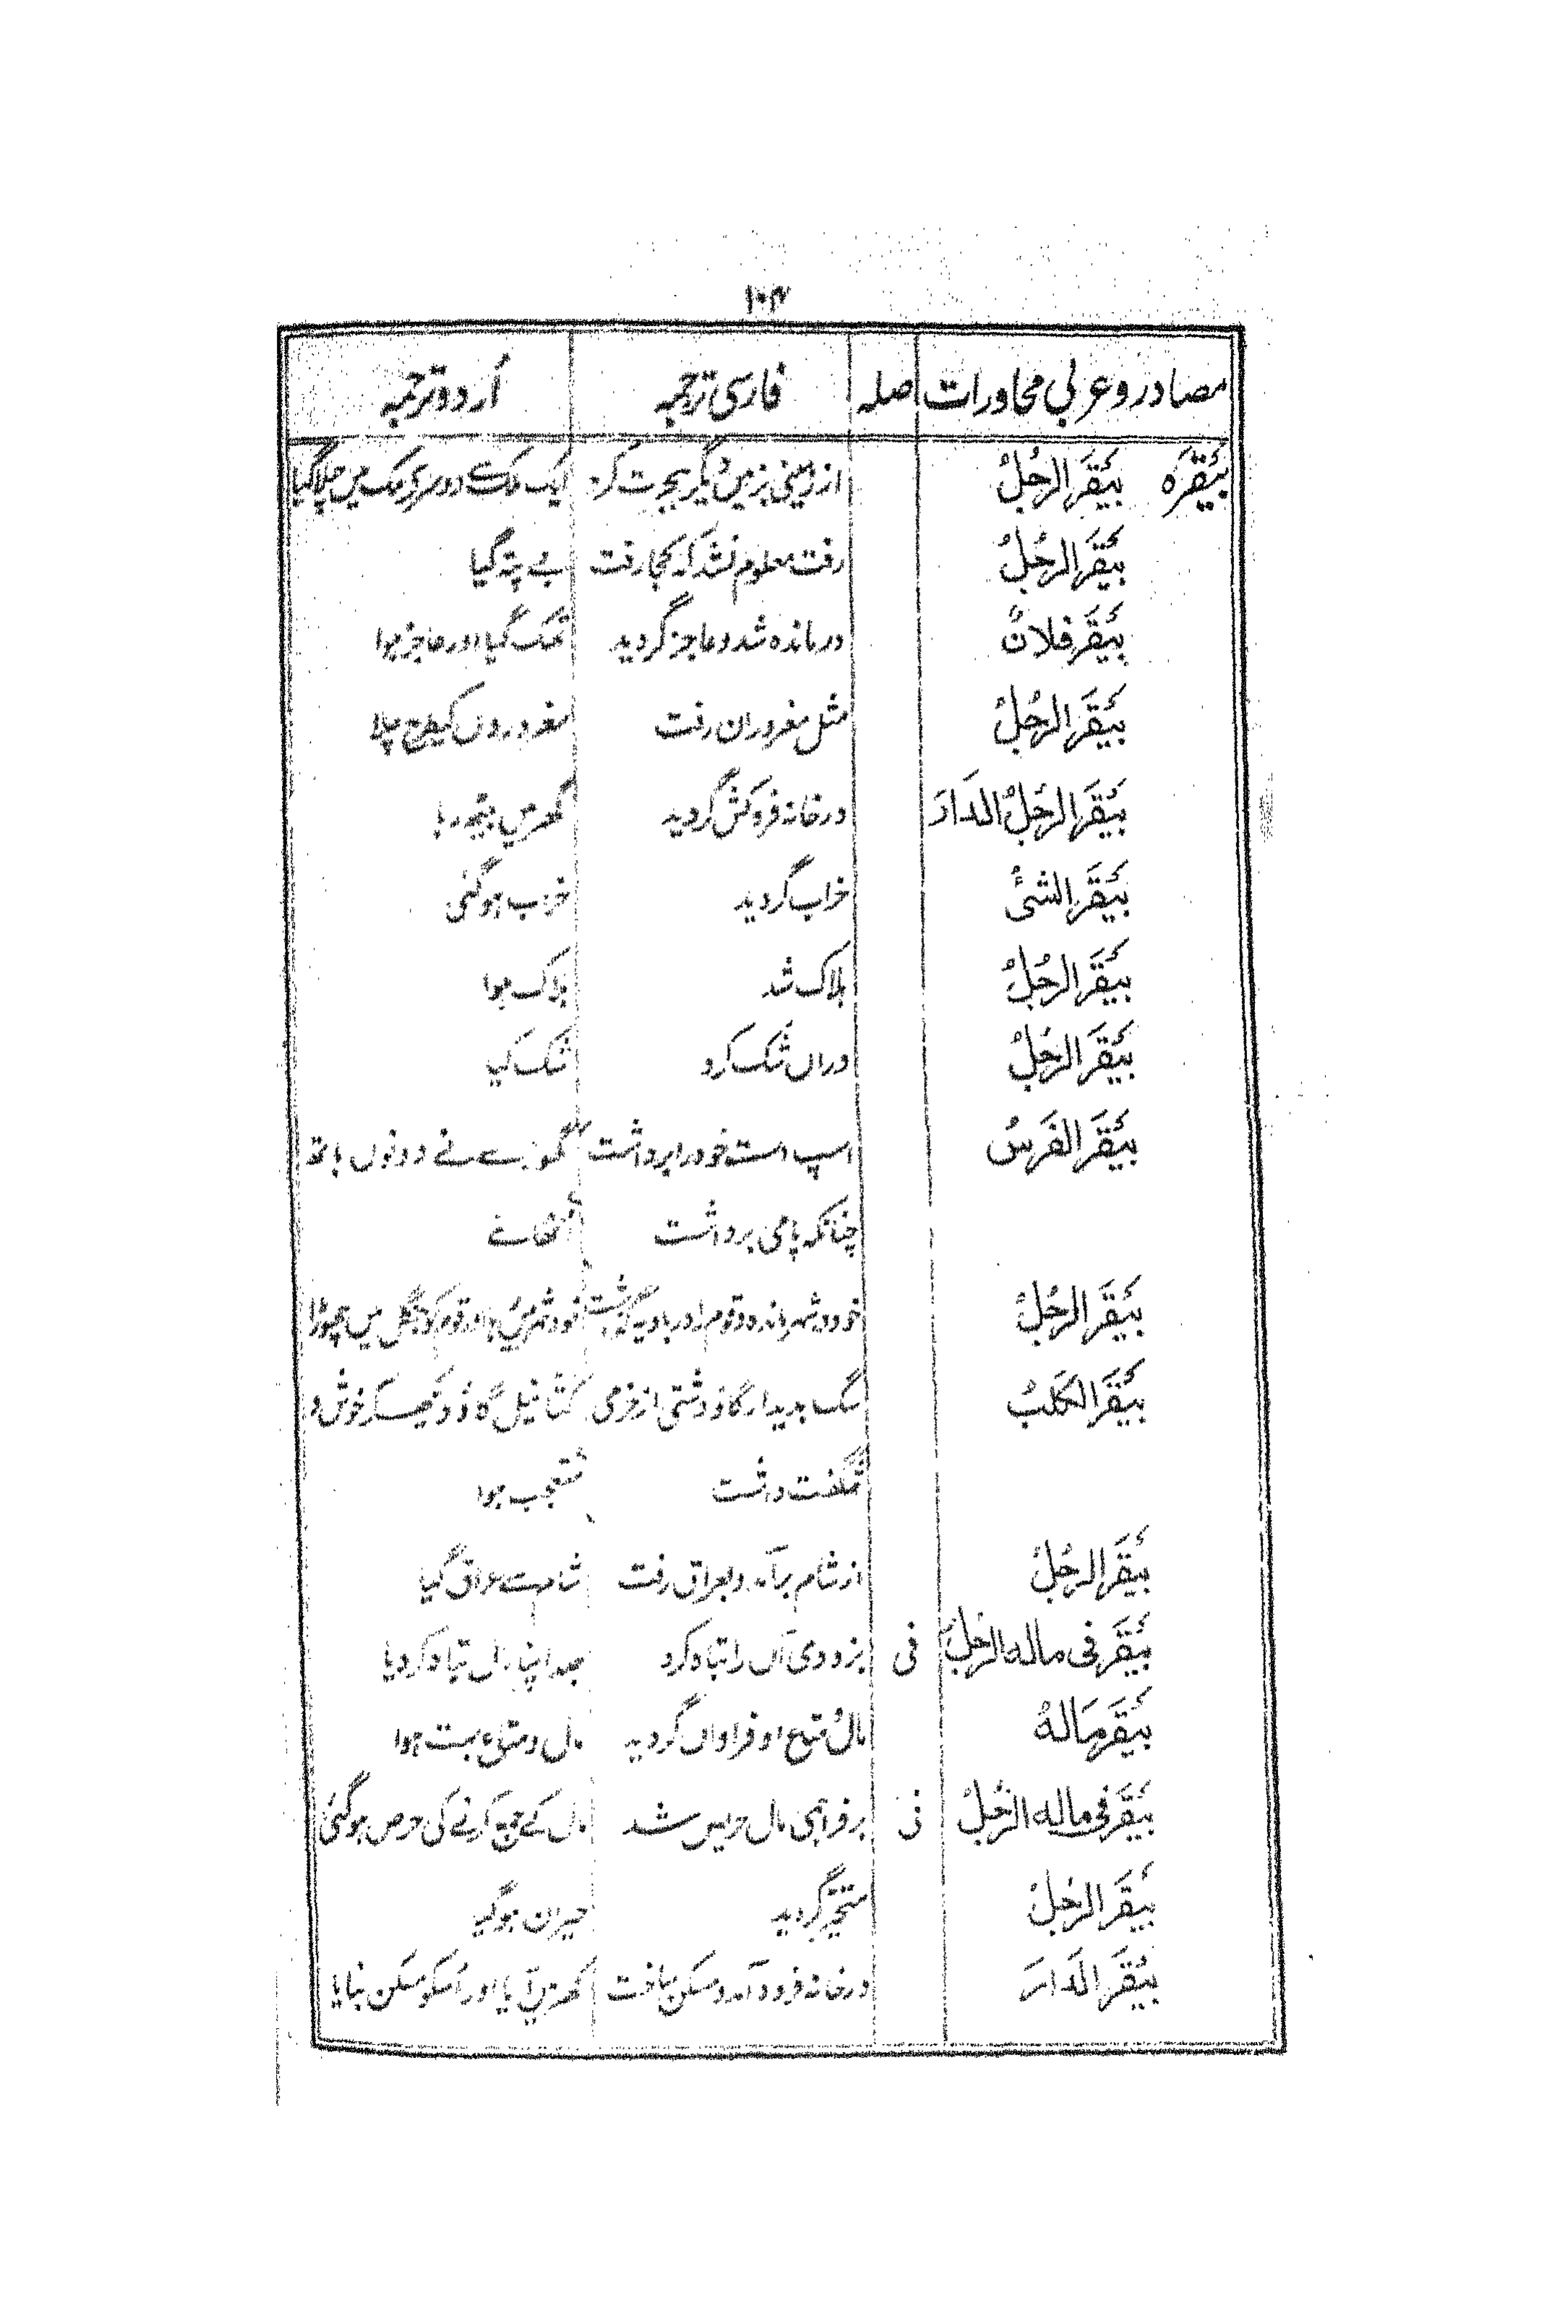 ۱۰۴
مصادر و عربی محاورات صلہ فارسی ترجمہ اُردو ترجمہ
بَيْقَرَه بَيْقَرَ الرَجُلُ از زمینی بزمین دیگر ہجرت کرد ایک ملک سے دوسرے ملک میں چلا گیا
بَيْقَرَ الرَجُلُ رفت معلوم نشد کہ کجا رفت بے پتہ گیا
بَيْقَرَ فلانٌ درماندہ شد و عاجز گردید تھک گیا اور عاجز ہوا
بَيْقَرَ الرَجُلُ مثل مغروران رفت مغروروں کیطرح چلا
بَيْقَرَ الرَجُلُ الدَارَ درخانہ فروکش گردید گھر میں بیٹھ رہا
بَيْقَرَ الشیُٔ خراب گردید خراب ہوگئی
بَيْقَرَ الرَجُلُ ہلاک شد ہلاک ہوا
بَيْقَرَ الرَجُلُ دراں شک کرد شک کیا
بَيْقَرَ الفَرَسُ اسپ دست خود را برداشت گھوڑے نے دونوں ہاتھ
چنانکہ پا می برداشت اُٹھائے
بَيْقَرَ الرَجُلُ خود در شہر ماندہ و قوم را در بادیہ گذاشت خود شہر میں رہا اور قوم کو جنگل میں چھوڑا
بَيْقَرَ الكَلبُ سگ بدیدار گاؤ دشتی از خرمی کتا نیل گاؤ کو دیکھکر خوش و
شگفت داشت متعجب ہوا
بَيْقَرَ الرَجُلُ از شام برآمد و بعراق رفت شام سے عراق گیا
بَيْقَرَ فی ماله الرَجُلُ فی بزودی آں را تباہ کرد جلد اپنا مال تباہ کر دیا
بَيْقَرَ مَالهُ مال و متاع او فراواں گردید مال و متاع بہت ہوا
بَيْقَرَ فی ماله الرَجُلُ فی بر فراہمی مال حریص شد مال کے جمع کرنے کی حرص ہوگئی
بَيْقَرَ الرَجُلُ متحیر گردید حیران ہوگیا
بَيْقَرَ الدَارَ درخانہ فرود آمد و مسکن ساخت گھر میں آیا اور اُسکو مسکن بنایا